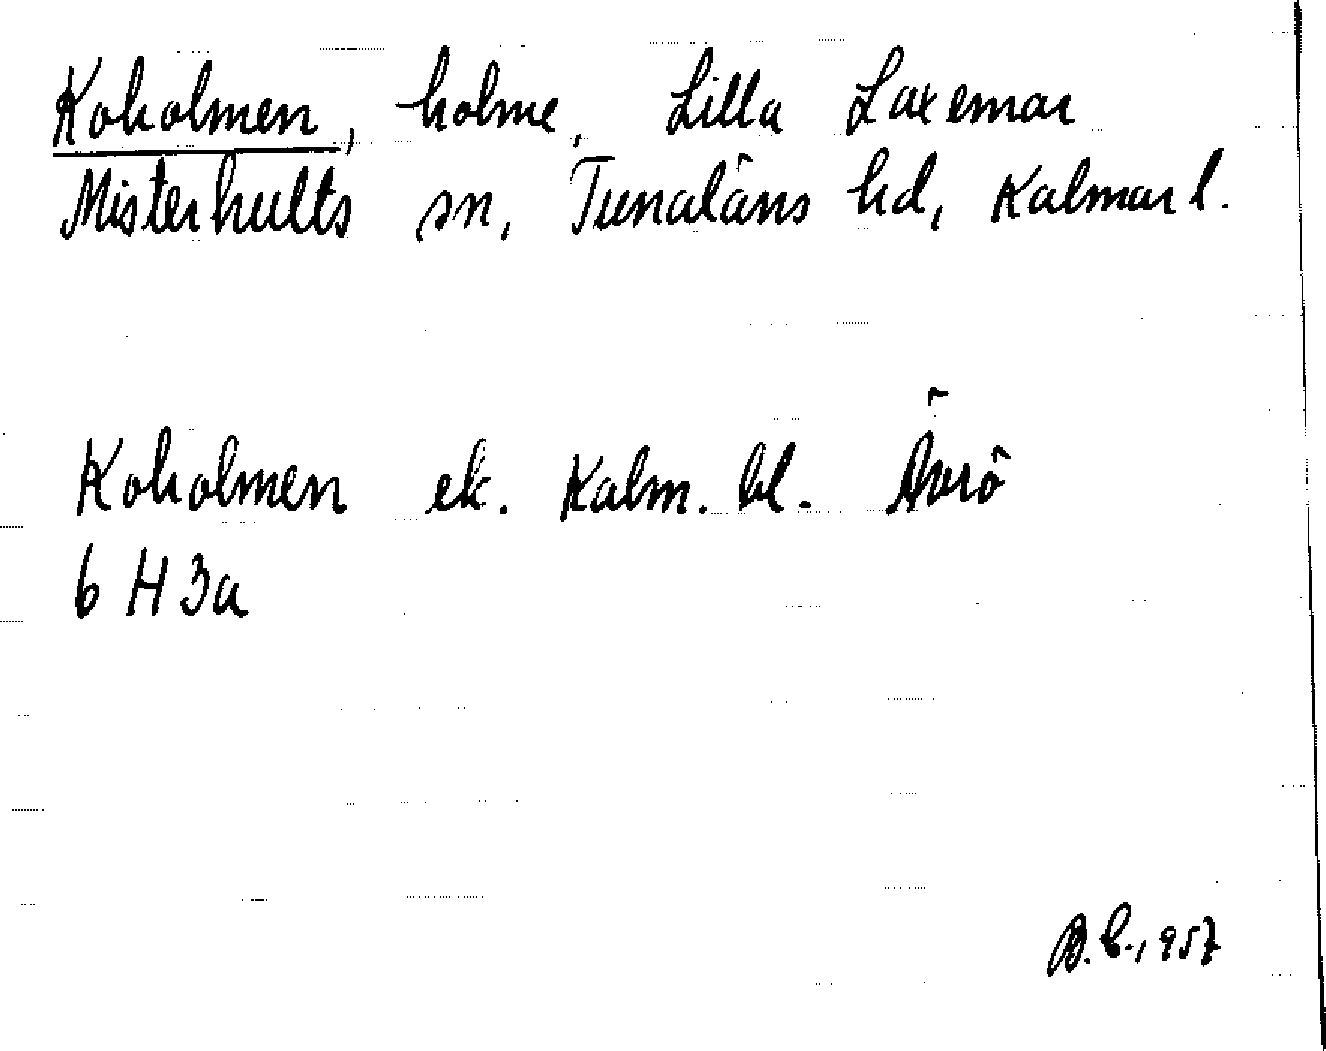 Koholmen, holme, Lilla Laxemar
Misterhults sn, Tunaläns hd, Kalmar l.
Koholmen ek. Kalm. bl. Ävrö
6 H 3a
1957